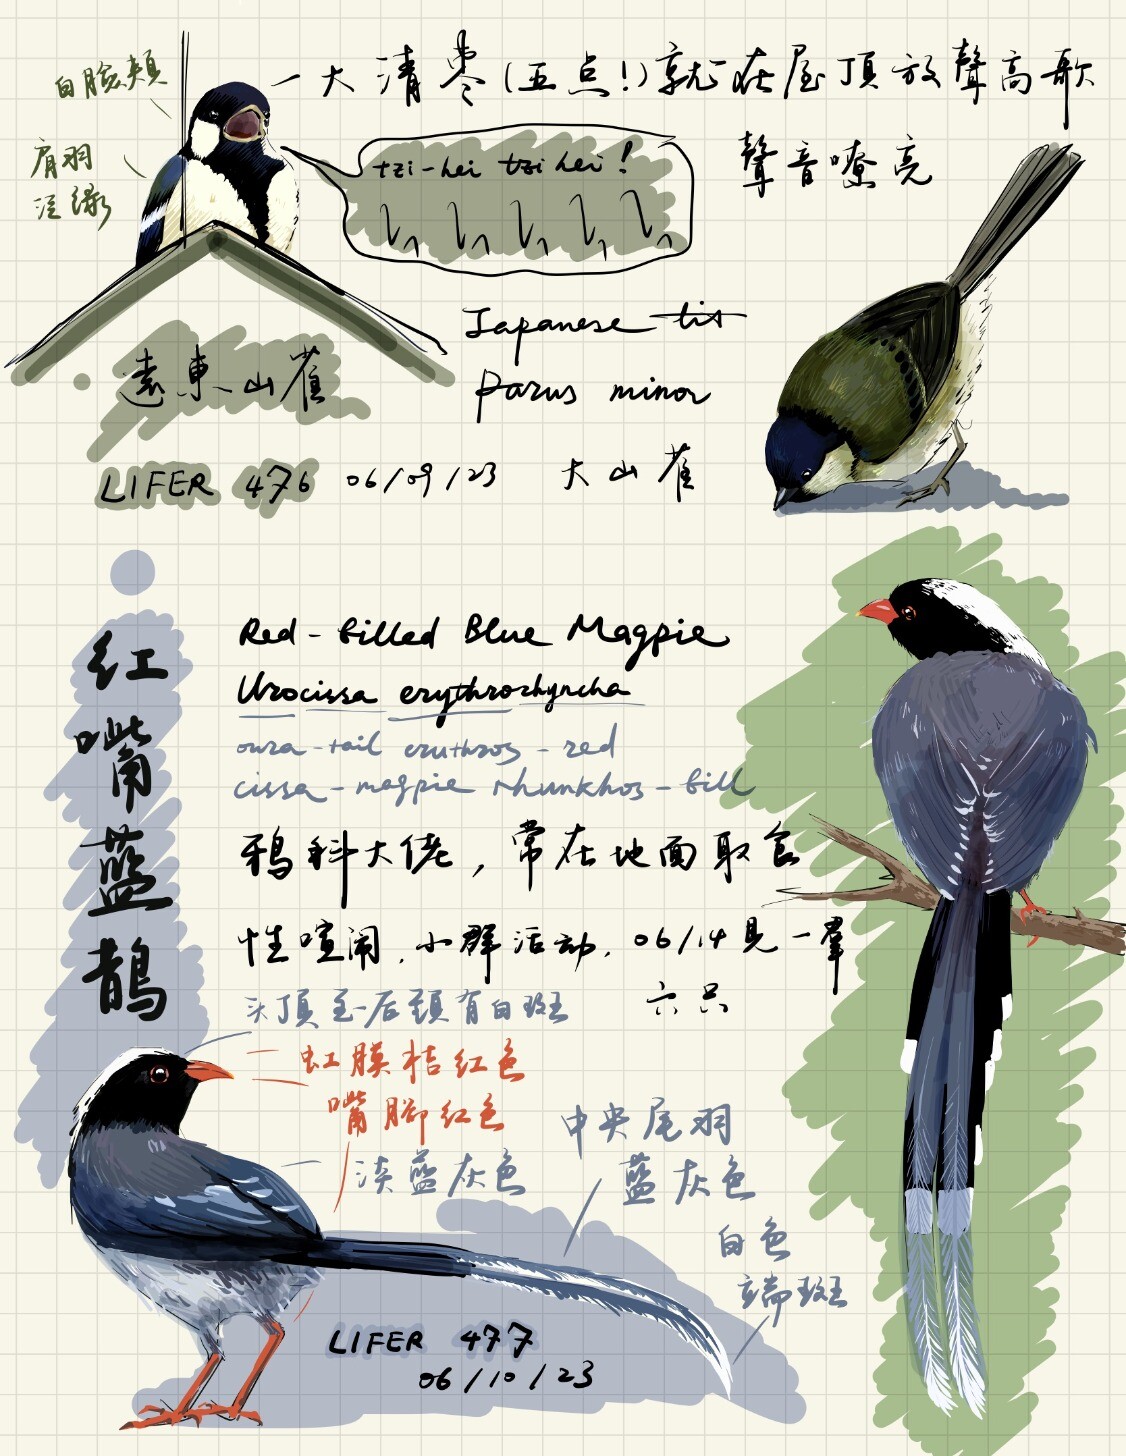 一大清枣(五点!)就在屋頂放聲高歌
聲音嘹亮
白臉頰
肩羽
泛綠
tzi-hei tzi hei!
Japanese tit
Parus minor
遠東山雀
LIFER 476 06/09/23 大山雀
红嘴蓝鹊
Red-billed Blue Magpie
Urocissa erythrorhyncha
oura-tail eruthros-red
cissa-magpie rhunkhos-bill
鸦科大佬，常在地面取食
性喧闹，小群活动，06/14見一羣
六只
头顶至后頸有白斑
虹膜桔红色
嘴脚红色
淡蓝灰色
中央尾羽
蓝灰色
白色
端斑
LIFER 477
06/10/23